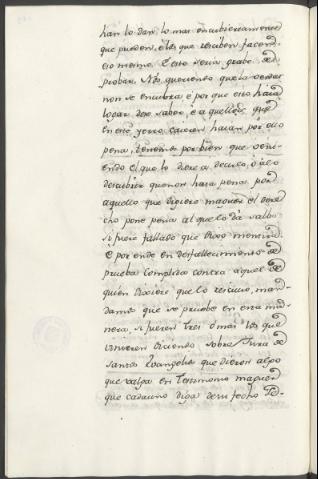 han lo dan lo mas encubiertamente
que pueden, e los que reciben facen
eso mesmo. E esto seria grabe de
probar. Nos queriendo que la verdad
non se encubra e por que esto haia
logar de se saber, e aquellos que
en este yerro caieren haian por ello
pena, tenemos por bien que veni-
endo el que lo diere a decirlo, o a lo
descubrir que non haia pena por
aquello que dixiere maguer el dere-
cho pone pena al que lo da salbo
si fuere fallado que dixo mentira.
E por ende en desfallecimiento de
prueba complida contra aquel de
quien dixiere que lo rescivio, man-
damos que se pruebe en esta ma-
nera, si fueren tres o mas los que
vinieren diciendo sobre Jura de
Santos Evangelios que dieron algo
que valga su testimonio maguer
que cada uno diga de su fecho Po-